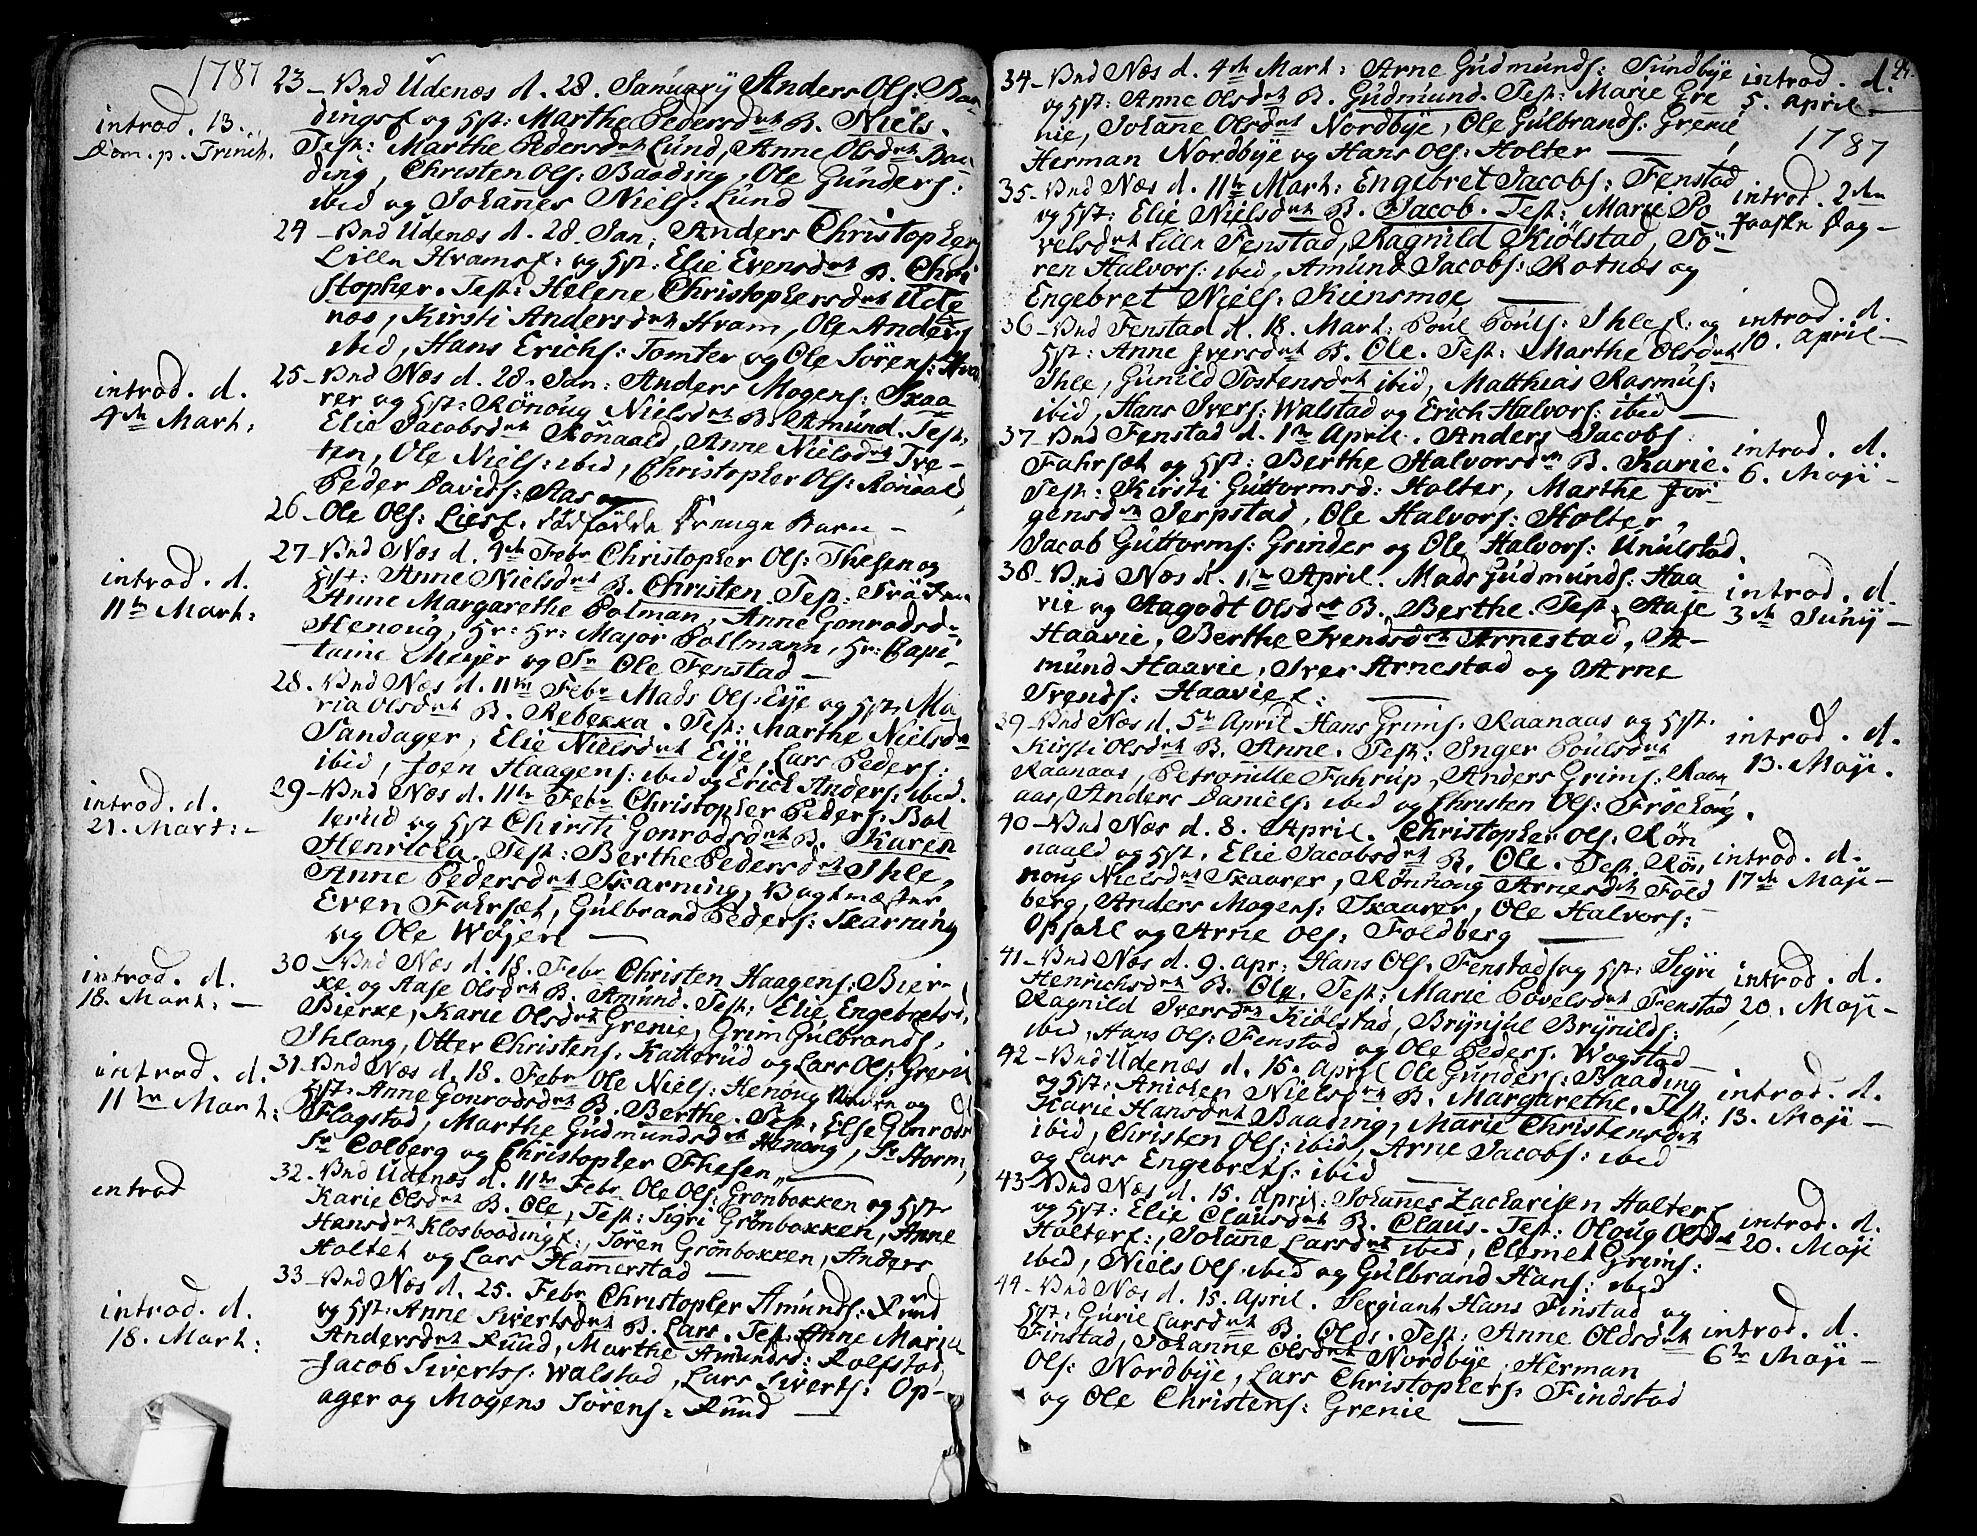 1787
introd. 13.
Dom. p. Trinit.
23 – Und Udenæs d. 28. January Anders Ols: Baa
dingsf og Hst: Marthe Pedersdtr B. Niels.
Test: Marthe Pedersdtr Lund, Anne Olsdtr Baa
ding, Christen Ols: Baading, Ole Gunders:
ibid og Johannes Niels: Lund
24 – Und Udenæs d. 28. Jan: Anders Christophers
Lille Hramsf: og Hst: Elie Evensdtr B. Chri
stopher. Test: Helene Christophersdtr Ude
næs, Kirsti Andersdtr Hram, Ole Anders
ibid, Hans Erichs: Tomter og Ole Sørens: Hra
introd. d.
4de Mart:
25 – Und Næs d. 28. Jan: Anders Mogens: Skaa
rer og Hst: Rønoug Nielsdtr B. Amund. Test:
Elie Jacobsdtr Rönaald, Anne Nielsdtr Tve-
ten, Ole Niels: ibid, Christopher Ols: Rönaald
Peder Davids: Aas
26 – Ole Ols: Liesf. dødfødde Drenge Barn –
introd. d.
11te Mart:
27 – Und Næs d. 4de Febr Christopher Ols: Thesen og
Hst: Anne Nielsdtr B. Christen. Test:
Anne Margarethe Polman, Anne Gonradsd
Henoug, Hr: Hr: Major Pollmann, Hr: Capi-
taine Meyer og Sr Ole Fenstad –
28. Und Næs d. 11te Febr Mads Ols: Eye og Hst: Ma
ria Olsdtr B. Rebekka. Test: Marthe Nielsdtr
Sandager, Elie Nielsdtr Eye, Lars Peders:
ibid, Joen Haagens: ibid og Erick Anders: ibid.
introd. d.
21. Mart: –
29 – Und Næs d. 11te Febr Christopher Peders: Bol
lerud og Hst Chirsti Gonradsdtr B. Karen
Henricka. Test: Berthe Pedersdtr Ihle,
Anne Pedersdtr Skarning, Vagtmester
Even Fahrsæt, Gulbrand Peders: Skarning
og Ole Wøjeri
introd. d.
18. Mart: –
30 – Und Næs d. 18. Febr Christen Haagens: Bier-
ke og Aase Olsdtr B. Amund. Test: Elie Engebretsd
Bierke, Karie Olsdtr Grenie, Grim Gulbrands.
Ihlang, Otter Christens: Katterud og Lars Ols: Greni
introd. d.
11te Mart:
31 – Und Næs d. 18. Febr Ole Niels: Henoug og
Hst: Anne Gonradsdtr B. Berthe. Test: Else Gonrads
Flagstad, Marthe Gudmundsdtr Henoug, Sr Storm,
Sr Colberg og Christopher Thesen
introd
32. Und Udenæs d. 11te Febr Ole Ols: Grønbakken og Hst
Karie Olsdtr B. Ole, Test: Sigri Grønbakken, Anne
Hansdtr Klosbaadingf:, Søren Grønbakken, Anders
Haltet og Lars Hamerstad
introd. d.
18. Mart:
33 – Und Næs d. 25. Febr Christopher Amunds: Ruud
og Hst: Anne Sivertsdtr B. Lars. Test: Anne Maria
Andersdtr Ruud, Marthe Amundsd: Rolfstad,
Jacob Siverts: Walstad, Lars Siverts: Op-
ager og Mogens Sörens: Ruud
34 – Und Næs d. 4de Mart: Arne Gudmunds: Sundbye
og Hst: Anne Olsdtr B. Gudmund. Test: Marie Gre
nie, Johanne Olsdtr Nordbye, Ole Gulbrands: Grenie,
Herman Nordbye og Hans Ols: Holter
introd. d.
5. April –
1787
35 – Und Næs d. 11te Mart: Engebret Jacobs: Fenstad
og Hst: Elie Nielsdtr B. Jacob. Test: Marie Po
velsdtr Lille Fenstad, Ragnild Kiölstad, Sö-
ren Halvors: ibid, Amund Jacobs: Rotnæs og
Engebret Niels: Kiensmoe
introd. 2den
Paaske Dag –
36 – Und Fenstad d. 18. Mart: Poul Pouls: Ihlef: og
Hst: Anne Iversdtr B. Ole. Test: Marthe Olsdtr
Ihle, Gunild Tostensdtr ibid, Matthias Rasmus:
ibid, Hans Ivers: Walstad og Erich Halvors: ibid –
introd. d.
10. April –
37 – Und Fenstad d. 1te April. Anders Jacobs:
Fahrsæt og Hst: Berthe Halvorsdtr B. Karie.
Test: Kirsti Guttormsd: Holter, Marthe Jør
gensdtr Serpstad, Ole Halvors: Holter,
Jacob Guttorms: Grinder og Ole Halvors: Unulstad.
introd. d.
6. Maji –
38 – Und Næs d. 1te April. Mads Gudmunds: Haa
vie og Aagodt Olsdtr B. Berthe. Test: Aase
Haavie, Berthe Svendsdtr Arnestad, A-
mund Haavie, Iver Arnestad og Arne
Svends: Haavief:
introd. d.
3de Juny –
39 – Und Næs d. 5te April Hans Grims: Raanaas og Hst.
Kirsti Olsdtr B. Anne. Test: Inger Poulsdtr
Raanaas, Petronille Fahrup, Anders Grims: Raan
aas, Anders Daniels: ibid og Christen Ols: Frøehoug.
introd. d.
13. Maji.
40 – Und Næs d. 8. April. Christopher Ols: Røn
naald og Hst. Elie Jacobsdtr B. Ole. Test. Røn
noug Nielsdtr Skaarer, Rønnoug Arnesdtr Fold
berg, Anders Mogens: Skaarer, Ole Halvors:
Opsahl og Arne Ols: Foldberg
introd. d.
17de Maji –
41 – Und Næs d. 9. Apr: Hans Ols: Fenstadf og Hst: Sigri
Henrichsdtr B. Ole. Test: Marie Povelsdtr Fenstad,
Ragnild Iversdtr Kiölstad, Brynjul Brynilds:
ibid, Hans Ols: Fenstad og Ole Peders. Wagstad –
introd. d.
20. Maji –
42 – Und Udenæs d. 15. April Ole Gunders: Baading
og Hst: Anichen Nielsdtr B. Margarethe. Test:
Karie Hansdtr Baading, Marie Christensdtr
ibid, Christen Ols: ibid, Arne Jacobs: ibid
og Lars Engebrets: ibid
introd. d.
13. Maji –
43 – Und Næs d. 15. April: Johanes Zacharisen Halterf
og Hst: Elie Clausdtr B. Claus. Test: Oloug Olsdtr
Halterf:, Johanne Larsdtr ibid, Clemet Grims:
ibid, Niels Ols: ibid og Gulbrand Hans: ibid
introd. d.
20. Maji
44 – Und Næs d. 15. April. Sergiant Hans Finstad og
Hst: Gurie Larsdtr B. Olds. Test: Anne Oldsdtr
Finstad, Johanne Olsdtr Nordbye, Herman
Ols: Nordbye, Lars Christophers: Findstad
og Ole Christens: Grenie
introd. d.
6te Maji –